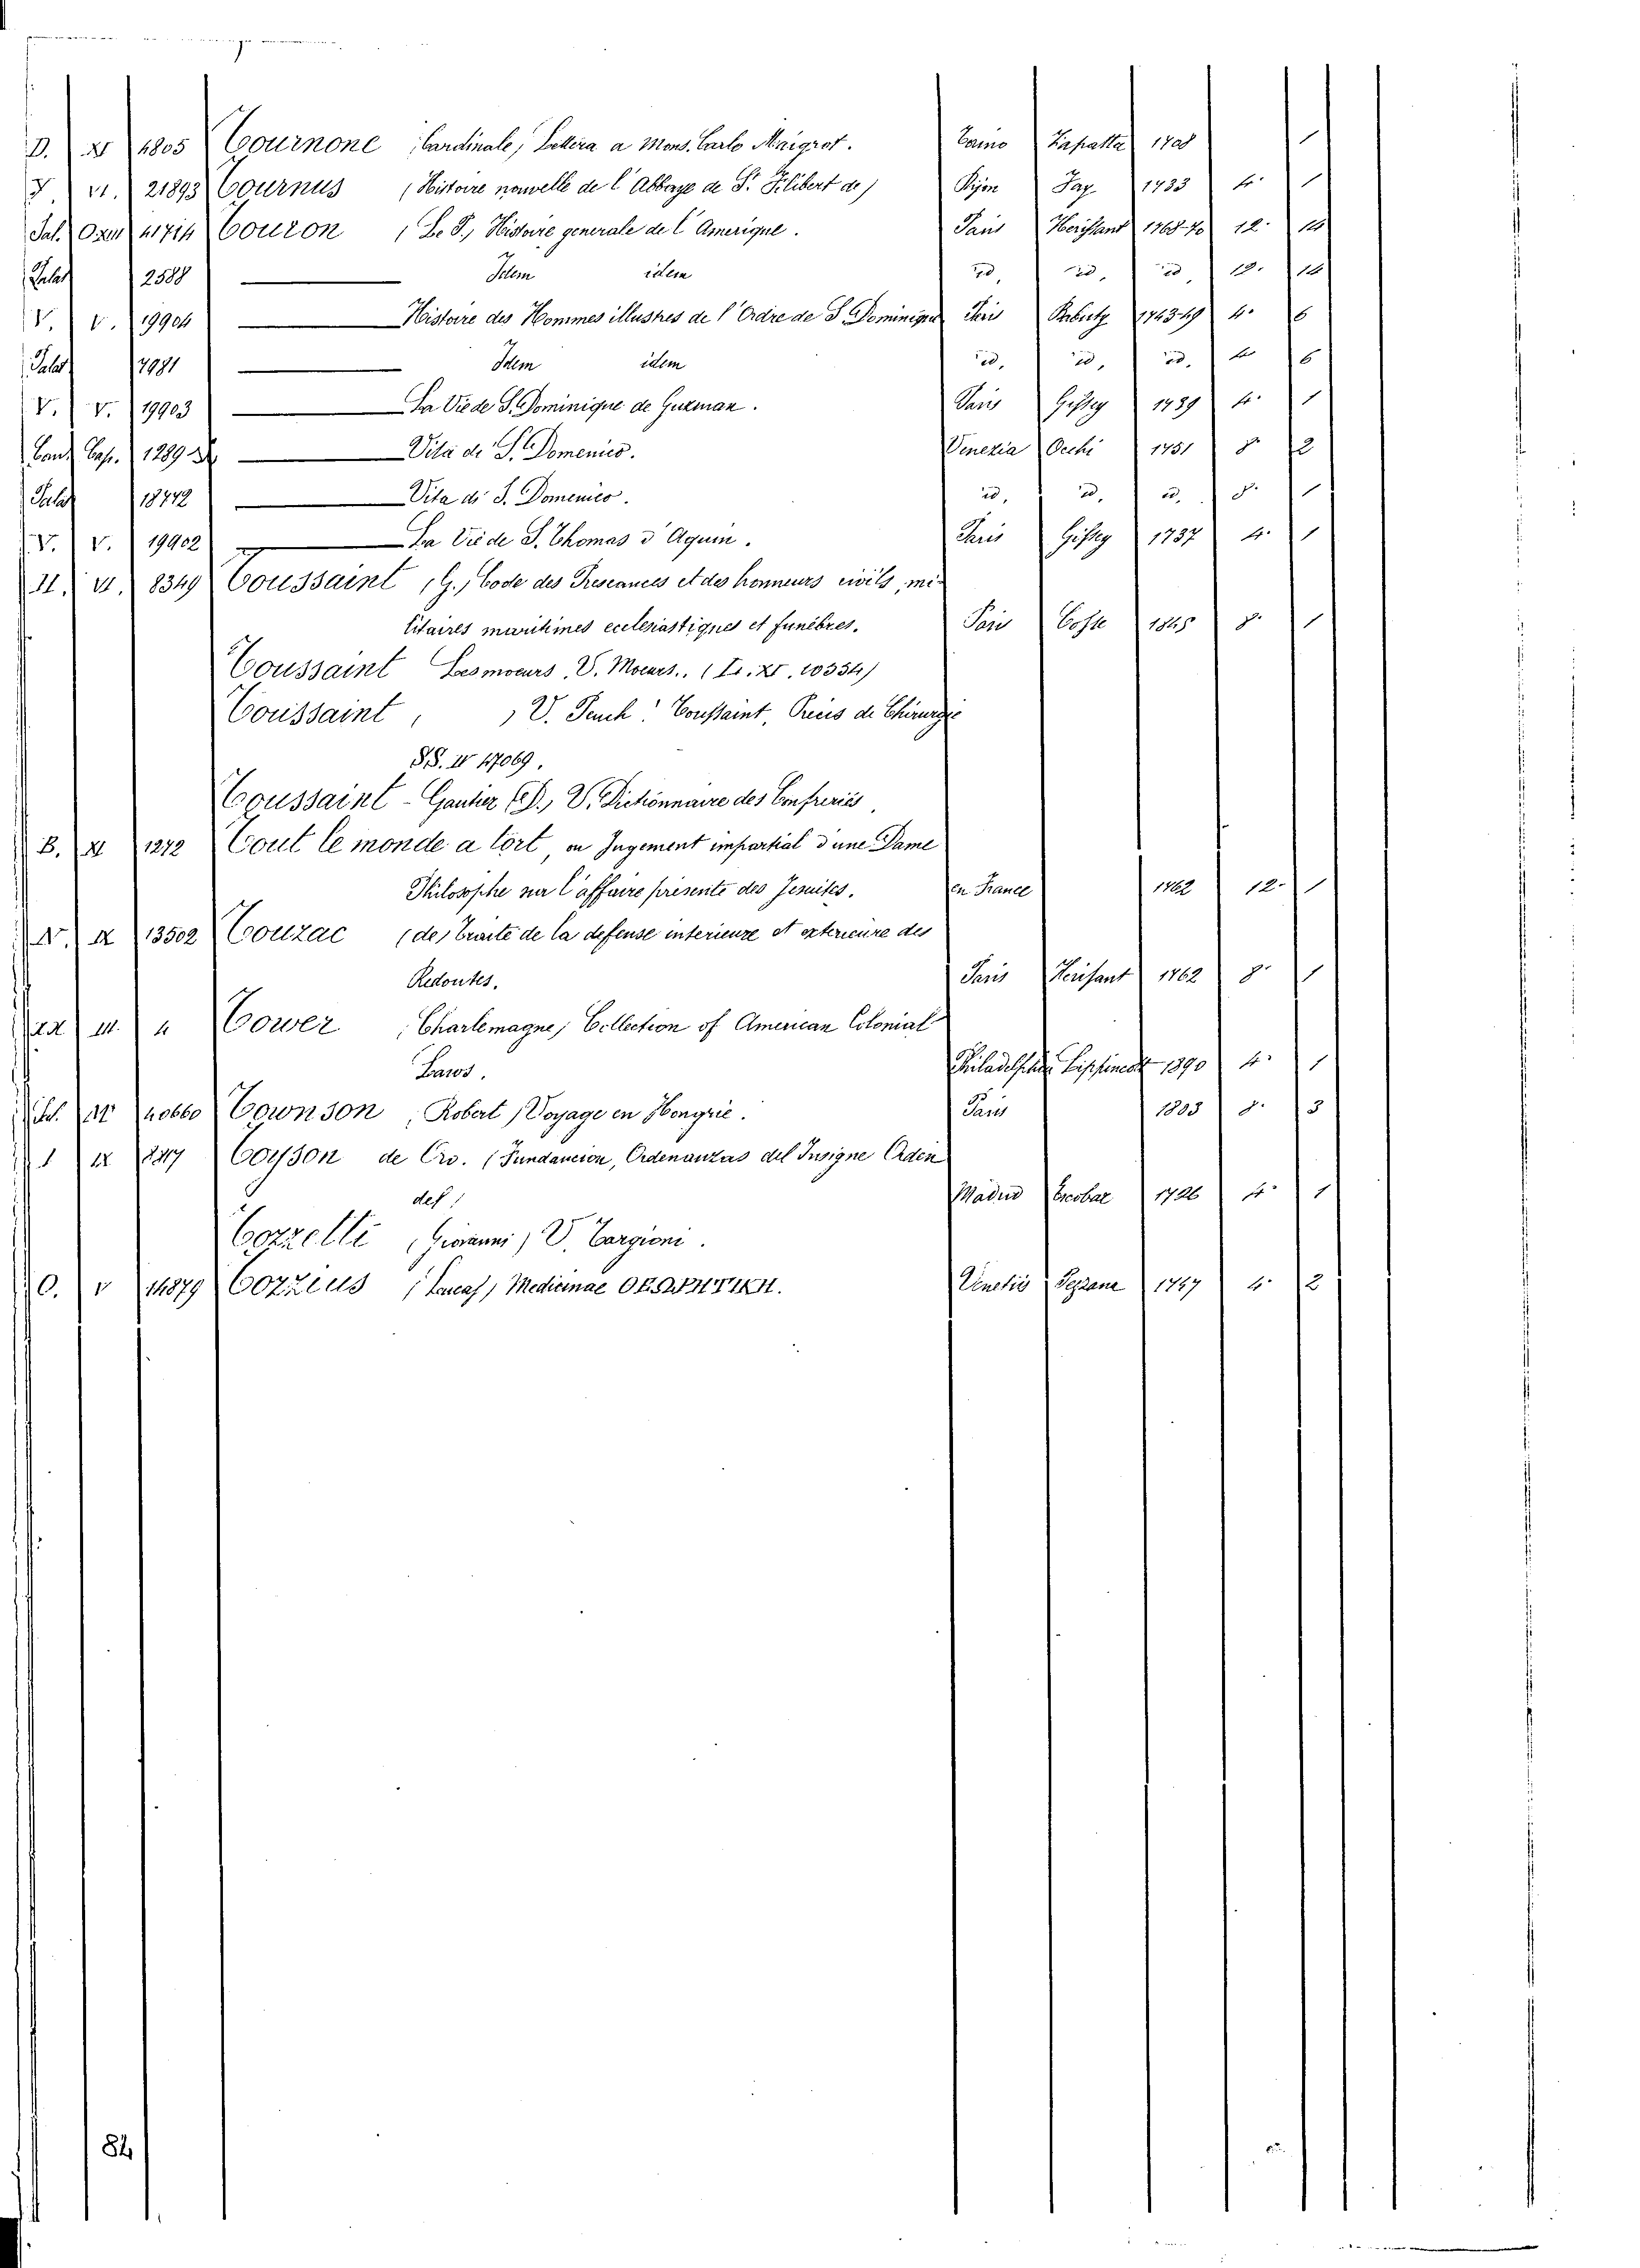 D. XV 4805 Tournone (Cardinale) Lettera a Mons. Carlo Maigrot. Torino Zapatta 1708 1
VI. 21893 Tournus (Histoire nouvelle de l'Abbaye de St. Filibert de) Dijon Fay 1733 4. 1
41714 Touron (Le P.) Histoire generale de l'Amerique. Paris Herissant 1768-70 12. 14
2588 Idem idem id, id, id, 12. 14
V. V. 19904 Histoire des Hommes illustres de l'Ordre de S. Dominique Paris Babuty 1743-49 4. 6
7981 Idem idem id, id, id. 4. 6
V. V. 19903 La Vie de S. Dominique de Guzman. Paris Gissey 1739 4. 1
Cand. Cap. 1289 Vita di S. Domenico. Venezia Occhi 1751 8 2
18772 Vita di S. Domenico. id, id, id. 8. 1
V. V. 19902 La Vie de S. Thomas d'Aquin. Paris Gissey 1737 4. 1
VI. 8349 Toussaint (G.) Code des Preseances et des honneurs civils, mi-
litaires maritimes ecclesiastiques et funèbres. Paris Cosse 1845 8. 1
Toussaint Les moeurs, V. Moeurs.. (Tr. XV. 10354)
Toussaint, , V. Tench: Toussaint, Precis de Chirurgie
SS. IV 47069.
Toussaint-Gautier (D.) V. Dictionnaire des Confreries
B. XI 1272 Tout le monde a tort, ou Jugement impartial d'une Dame
Philosophe sur l'affaire presente des Jesuites. en France 1762 12. 1
IX 13502 Touzac (de) Traite de la defense interieure et exterieure des
Redoutes. Paris Herisant 1762 8. 1
III. 4 Tower (Charlemagne) Collection of American Colonial
Laws. Philadelphia Lippincott 1890 4. 1
40660 Townson (Robert) Voyage en Hongrie. Paris 1803 8. 3
IX Toyson de Oro. (Fundancion, Ordenanzas del Insigne Orden
del) Madrid Escobar 1726 4. 1
Tozzetti (Giovanni) V. Targioni.
O. V 14879 Tozzius (Lucas) Medicinae Venetiis Pezzana 1747 4. 2
84